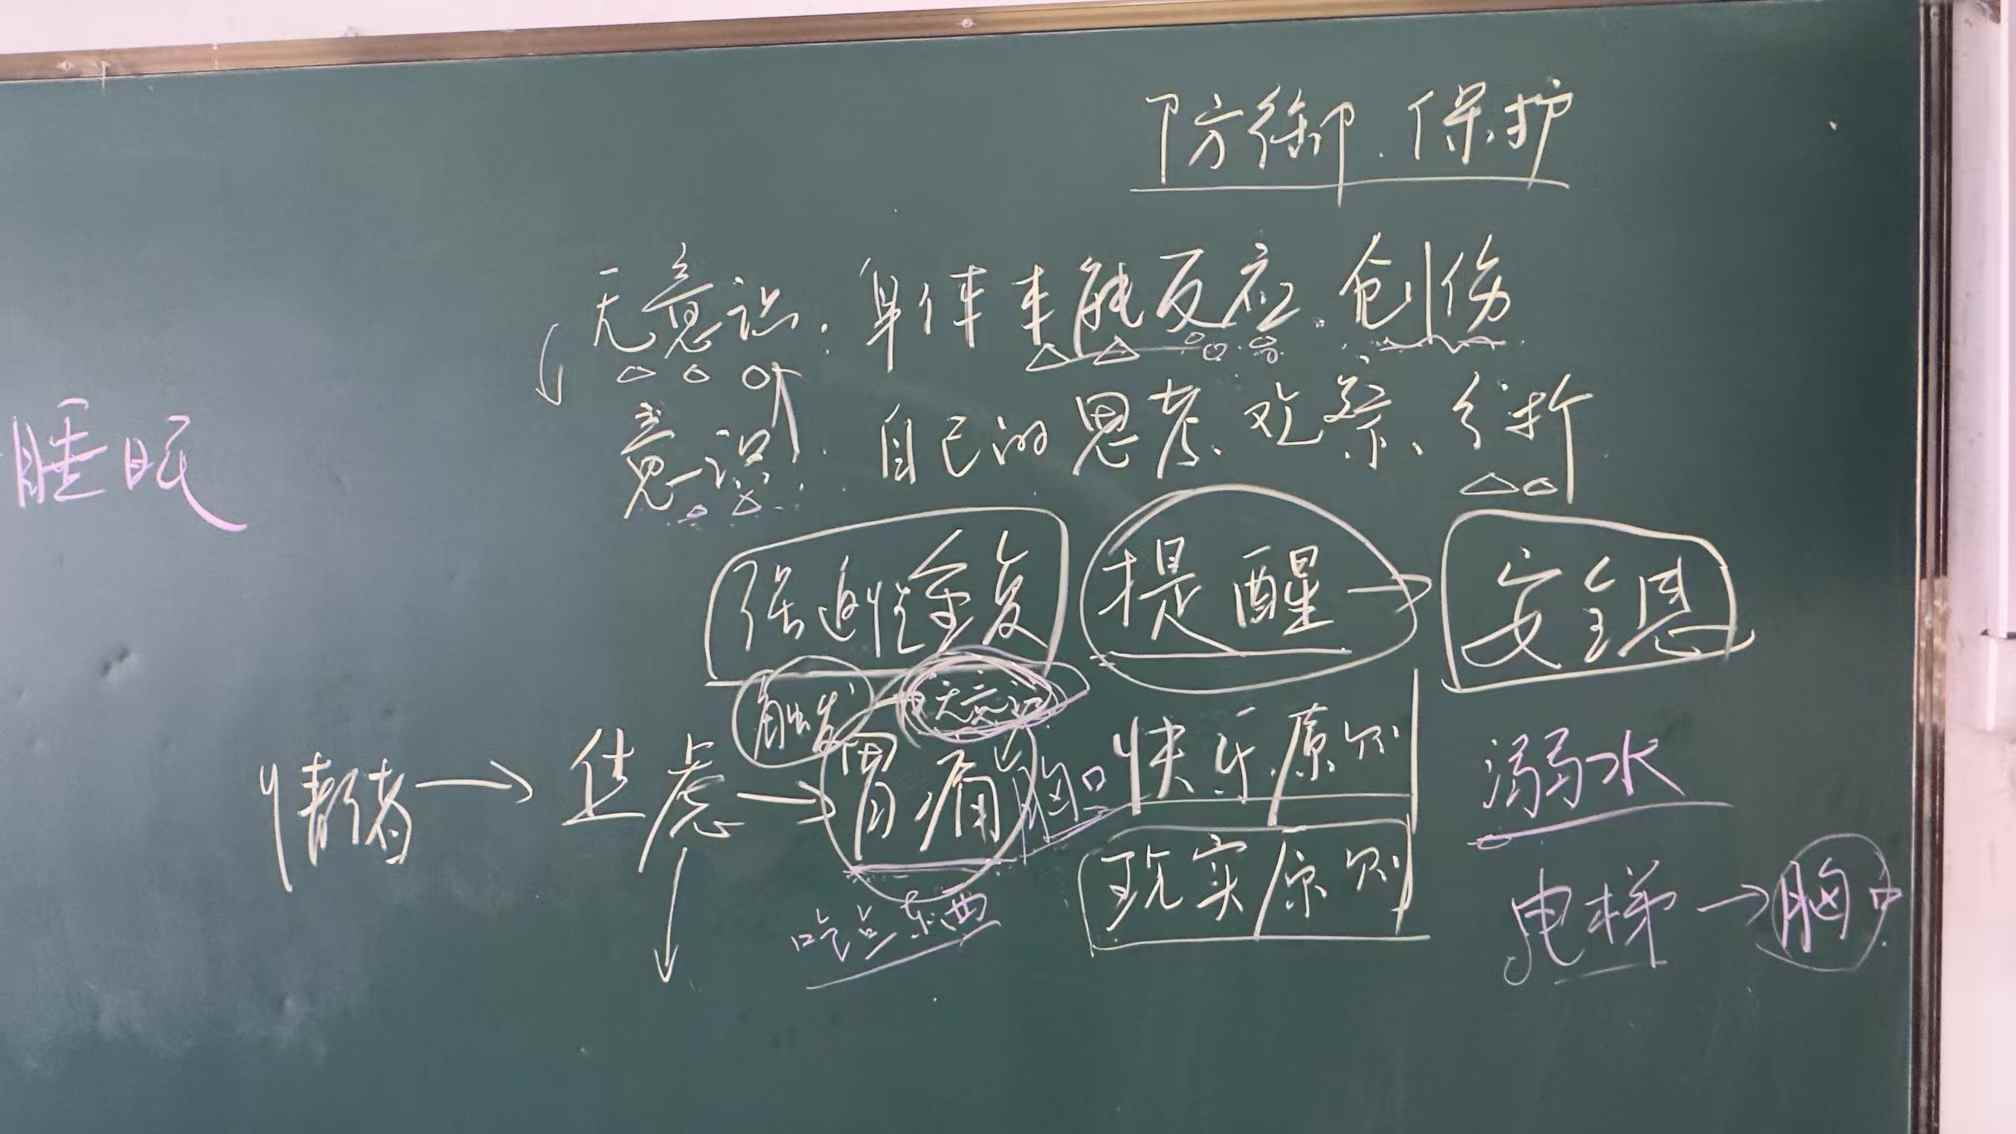 防御.保护
无意识.身体本能反应.创伤
意识.自己的思考、观察、分析
睡眠
强迫性重复 提醒→安全感
触发→无意识
情绪→焦虑→胃痛 胸口 快乐原则 溺水
吃点东西 现实原则 电梯→胸口